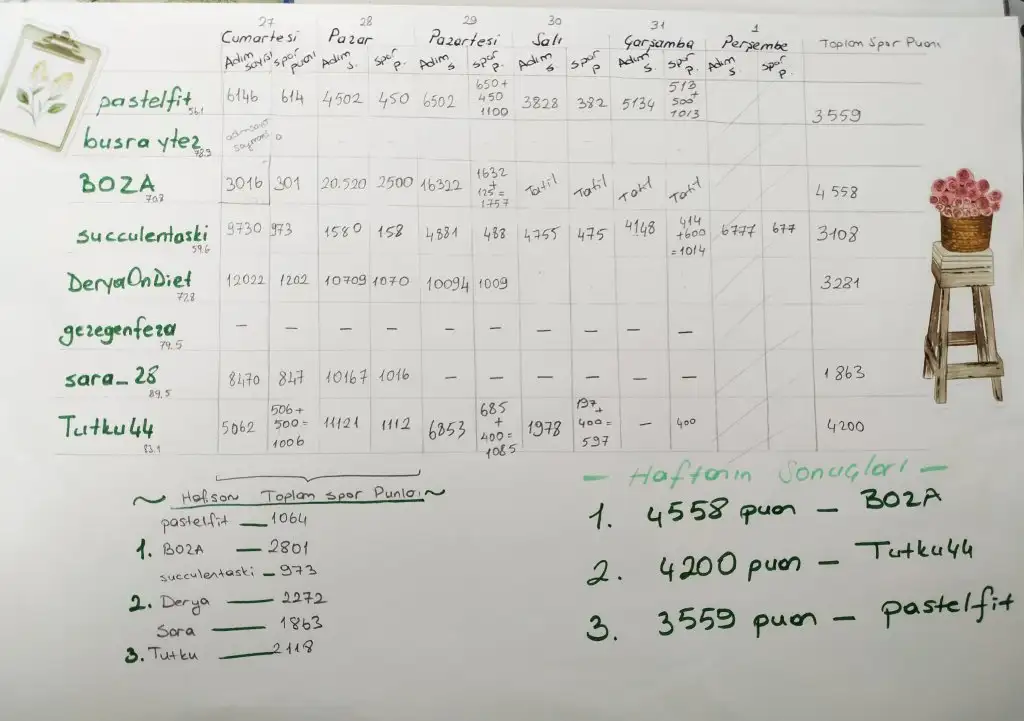 27 28 29 30 31 1
Cumartesi Pazar Pazartesi Salı Çarşamba Perşembe Toplam Spor Puanı
Adım sayısı spor puanı Adım s. spor p. Adım s spor p. Adım s spor p Adım s. spor p. Adım s spor p.
pastelfit 56.1 6146 614 4502 450 6502 650+ 450 1100 3828 382 5134 513 + 500 1013 3559
busra ytez 78.3 adımsayar saymamış 0
BOZA 70.8 3016 301 20.520 2500 16322 1632 + 125 = 1757 Tatil Tatil Tatil Tatil 4558
succulentaski 59.6 9730 973 1580 158 4881 488 4755 475 4148 414 +600 =1014 6777 677 3108
DeryaOnDiet 72.8 12022 1202 10709 1070 10094 1009 3281
gezegenfeza 79.5 — — — — — — — — — —
sara_28 89.5 8470 847 10167 1016 — — — — — — 1863
Tutku44 83.1 5062 506+ 500= 1006 11121 1112 6853 685 + 400= 1085 1978 197 + 400= 597 — 400 4200
~ Haf.son Toplam Spor Punları ~
pastelfit — 1064
1. BOZA — 2801
succulentaski — 973
2. Derya — 2272
Sara — 1863
3. Tutku — 2118
— Haftanın Sonuçları —
1. 4558 puan — BOZA
2. 4200 puan — Tutku44
3. 3559 puan — pastelfit